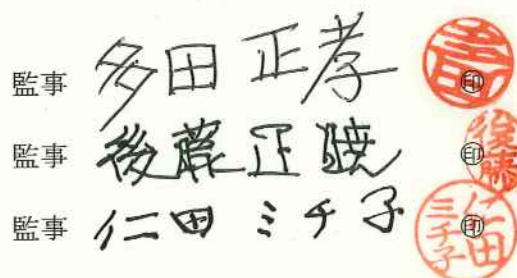 監事 多田正孝 ㊞
監事 後藤正暁 ㊞
監事 仁田ミチ子 ㊞